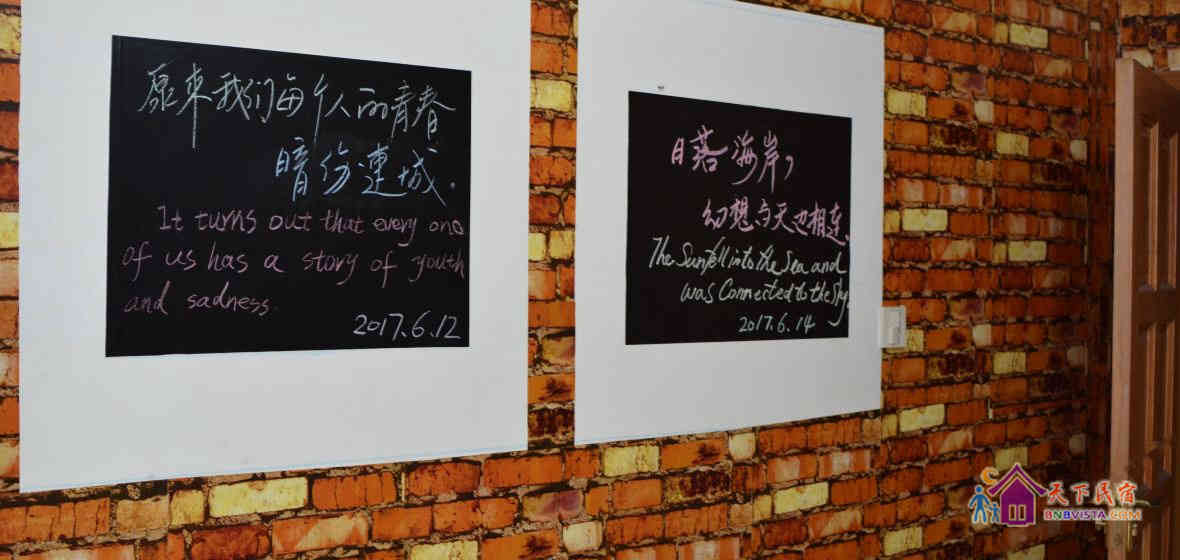 原來我们每个人的青春
暗纷連城.
It turns out that every one
of us has a story of youth
and sadness.
2017.6.12
日落海岸,
幻想与天也相连.
The Sun fell into the Sea and
was Connected to the Sky.
2017.6.14
天下民宿
BNBVISTA.COM